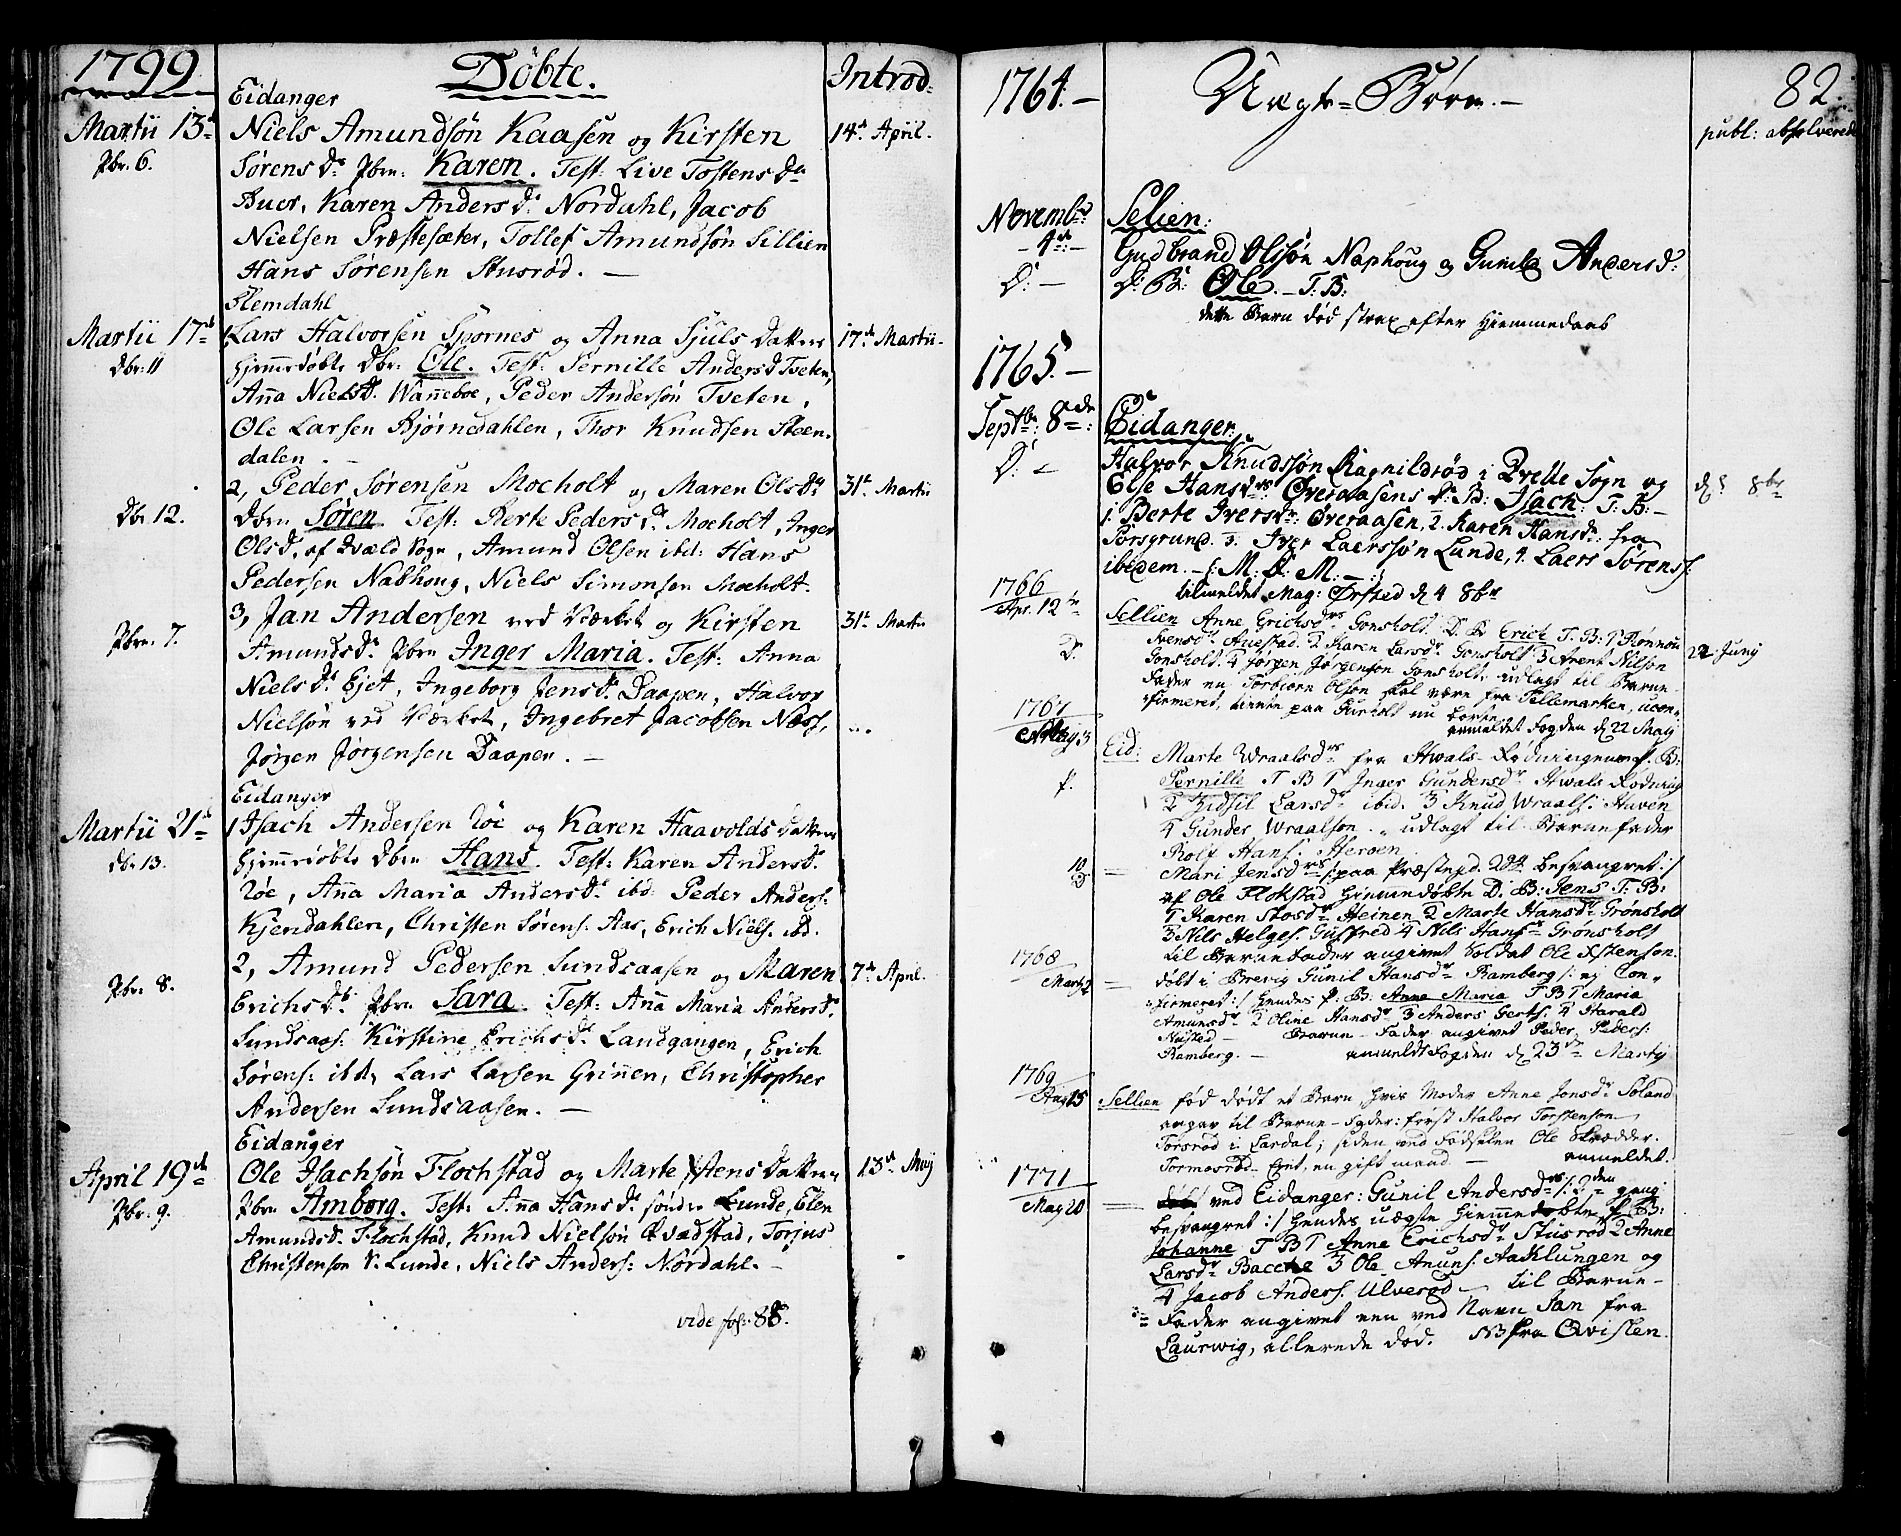 1799 Döbte. Introd:
Eidanger
Martii 13de Niels Amundsøn Kaasen og Kirsten 14de April.
Pbr. 6. Sørens Dr Pbrn: Karen. Test: Live Tostens Dr
Buer, Karen Anders Dr Nordahl, Jacob
Nielsen Præstesæter, Tollef Amundsøn Sillien
Hans Sørensen Stusrød. —
Slemdahl
Martii 17de 1, Lars Halvorsen Spornes og Anna Sjuls Datters 17de Martii
Dbr: 11 hjemmedøbte Dbr: Oll. Test: Pernille Anders D Tveten,
Anna Niels D. Wanneboe, Peder Andersøn Tveten,
Ole Larsen Bjørnedahlen, Thor Knudsen Steen-
dalen. —
2, Peder Sørensen Mocholt og Maren Ols Dr 31te Martii
Dbr. 12. Dbrn Søren Test: Berte Peders Dr Mocholt, Inger
Ols D. af Qvæld Sogn, Amund Olsen ibd: Hans
Pedersen Nabhoug, Niels Simonsen Mocholt.
3, Jan Andersen ved Værket og Kirsten 31te Martii
Pbr. 7. Amunds Dr Pbrn Inger Maria. Test: Anna
Niels Dr Ejet, Ingeborg Jens Dr Daapen, Halvor
Nielsøn ved Værket, Ingebret Jacobsen Næss,
Jørgen Jørgensen Daapen. —
Eidanger
Martii 21de 1, Isach Andersen Töe og Karen Haavolds Datters
Dbr. 13. hjemmedøbte Dbrn Hans. Test: Karen Anders Dr
Töe, Anna Maria Anders Dr ibd. Peder Anders:
Kjendahlen, Christen Sørens: Aas, Erich Niels. ibd.
2, Amund Pedersen Sundsaasen og Maren 7de April.
Pbr. 8. Erichs Dr Pbrn Sara. Test: Anna Maria Anders Dr
Sundsaas: Kirstine Erichs Dr Landgangen, Erich
Sørens: ibd, Lars Larsen Grinnen, Christopher
Andersen Sundsaasen. —
Eidanger
April 19de Ole Isachsøn Flochstad og Marte Jens Datters 13de Maij
Pbr. 9. Pbrn Amborg. Test: Anna Hans Dr sönder Lunde, Elen
Amunds D. Flochstad, Knud Nielsøn Qvædstad, Torjus
Christenson N. Lunde, Niels Anders: Nordahl. —
vide fol: 88.
1764. — Uægte-Børn. — 82.
publ: absolverede
Novembr: Selien:
4de Gudbrand Olssøn Naphoug og Gunild Andersd:
D: — D: B: Ole. — T: B:
dette Barn død strax efter Hjemmedaab
1765. —
Septbr: 8de: Eidanger.
D: Halvor Knudssøn Ragnildrød i Qvelle Sogn og
Else Hansdr: Øveraasens D: B: Isach: T: B: — d: 8br
1. Berte Iversdr: Øveraasen, 2. Karen Hansdr: fra
Porsgrund. 3. Iver Laerssøn Lunde, 4. Laers Sørens:
ibidem. —: M. D. M. —:
tilmeldet Mag: Ørsted d 4 8br
1766
Apr. 12te Sellien Anne Erichsdr: Gonsholt. D. B Erich T. B: 1 Rønnou
D. Svensdr. Aniestad. 2 Karen Larsdr. Gonsholt 3 Arent Nilson 22 Junij
Gonsholt. 4 Jørgen Jørgenson Gonsholt, udlagt til Barne-
Fader en Torbiørn Olson skal være fra Tellemarken, ucon-
firmeret, tienem paa
anmeldet Fogden d 22 Maij
1767
Maij 3 Eid: Marte Wraalsdr: fra Hwals-Eydningenens P. B:
P. Pernille T B 1 Inger Gundersdr. Hwals Eydning
2 Kidsil Larsdr ibid. 3 Knud Wraals: Haven
4 Gunder Wraalson. udlagt til Barnefader
Rolf Hans: Herøen.
10 Mari Jensdr: /: paa Præstejd. 2de besvangret :/
D af Ole Flokstad hjemmedøbte D. B: Jens T. B:
1 Karen Stosdr Heinen 2 Marte Hansdr Grønsholt
3 Nils Helges. Gusfred 4 Nils Hans Grønsholt
til Barnefader angivet Soldat Ole Istenson.
1768
Marty 2 døbt i Brevig Gunil Hansdr Ramberg /: ej Con-
firmeret :/ hendes P: B: Anne Maria T B 1 Maria
Amunsdr 2 Oline Hansdr 3 Anders Gerts: 4 Harald
Nusted — Barne-Fader angivet Peder Peders:
Ramberg. — anmeldt Fogden d 23de Martij
1769
Aug 15 Sellien fød dødt et Barn, hvis Moder Anne Jonsdr Søland
angav til Barne-Fader: først Halvor Torstenson
Torsrød i Lardal; siden ved Fødselen Ole Skrædder.
Tormosrød-Ejet, en gift mand. — anmeldet.
1771
May 20 ved Eidanger: Gunil Andersdr: /: 2den gang
besvangret :/ hendes uægte hjemmedøbte P B:
Johanne T B 1 Anne Erichsdr Stusrød 2 Anne
Larsdr Bacche 3 Ole Anuns. Aaklungen og
4 Jacob Anders. Ulverød — til Barne-
Fader angivet een ved Navn Jan fra
Laurwig, allerede død. NB fra Qvislen.